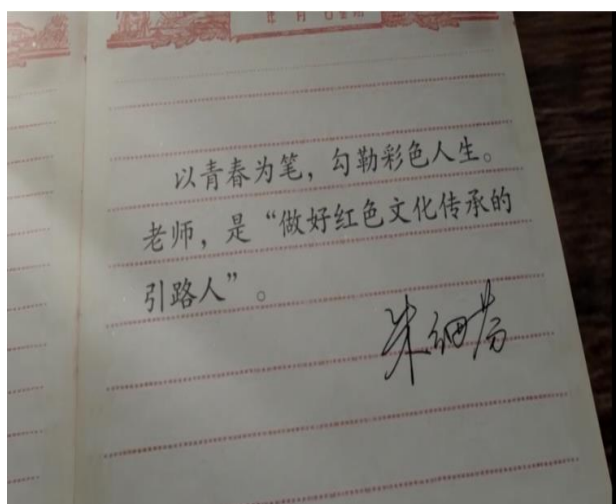 年 月 日 星期
以青春为笔，勾勒彩色人生。
老师，是“做好红色文化传承的
引路人”。
朱细芳